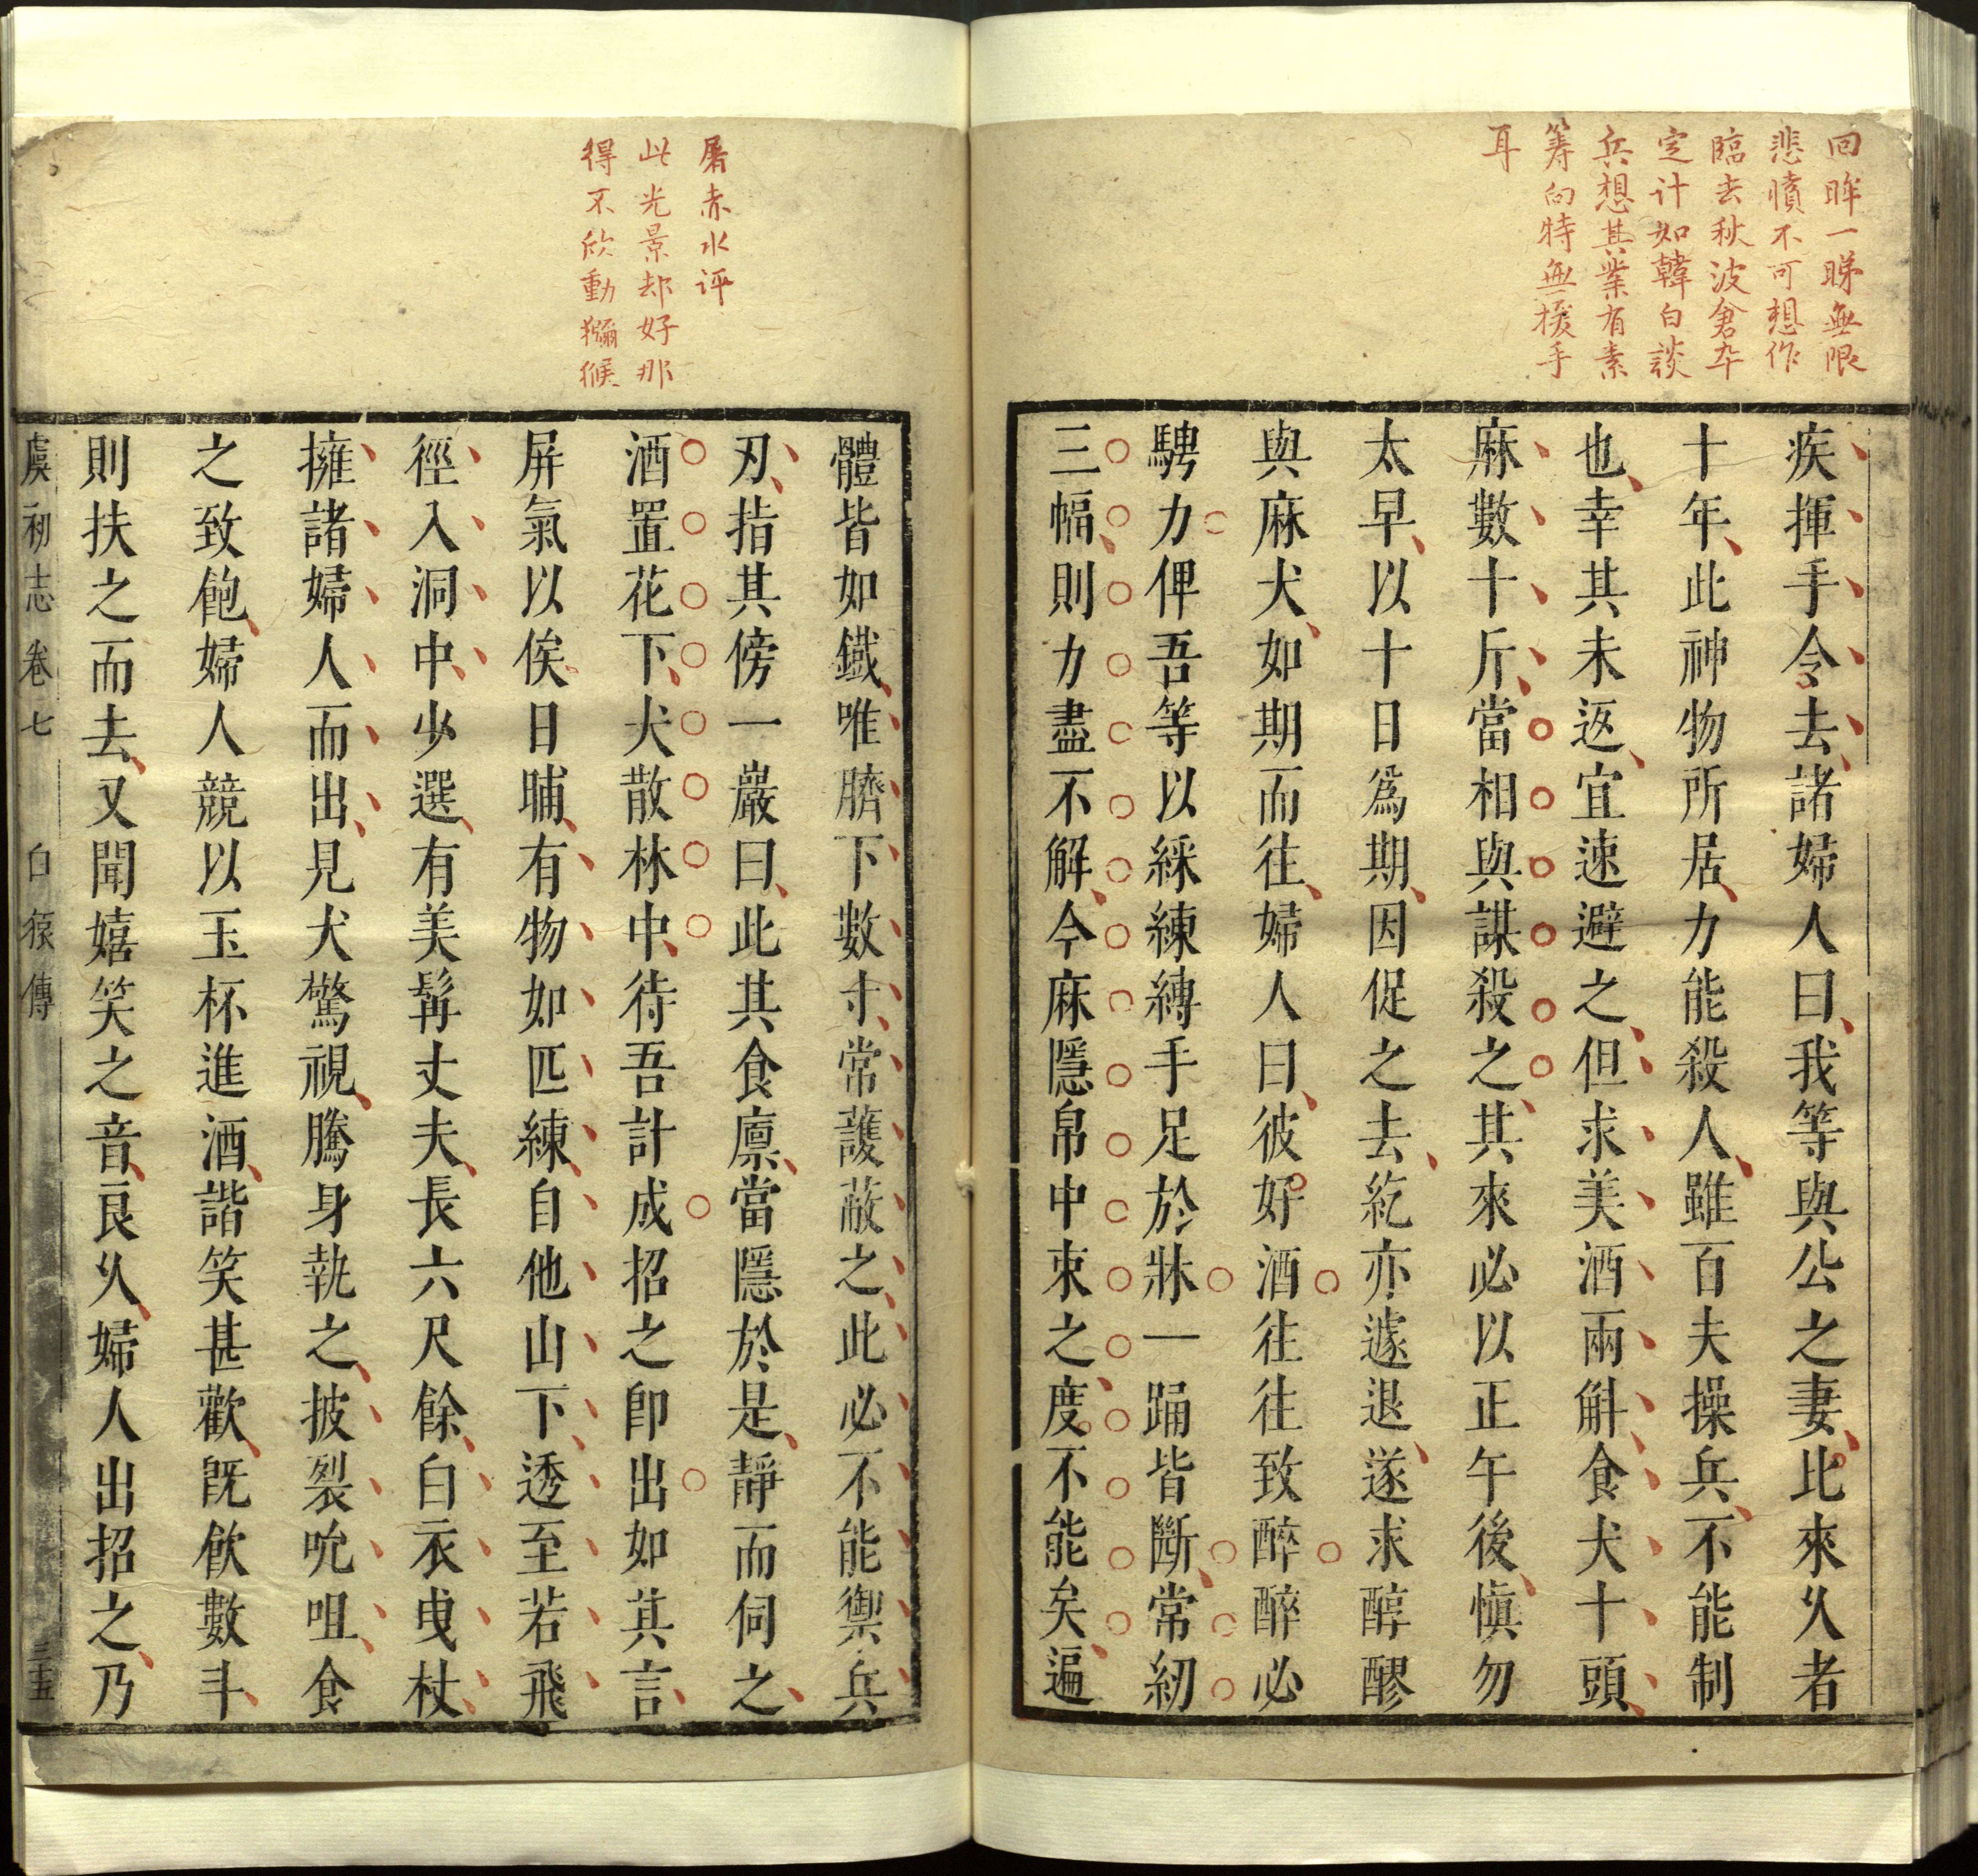 回眸一睇無限
悲憤不可想作
臨去秋波倉卒
定计如韓白談
兵想其業有素
筹向特無援手
耳
疾揮手令去諸婦人曰我等與公之妻比來久者
十年此神物所居力能殺人雖百夫操兵不能制
也幸其未返宜速避之但求美酒兩斛食犬十頭
麻數十斤當相與謀殺之其來必以正午後愼勿
太早以十日爲期因促之去紇亦遽退遂求醇醪
與麻犬如期而往婦人曰彼好酒往往致醉醉必
騁力俾吾等以綵練縛手足於牀一踊皆斷常紉
三幅則力盡不解今麻隱帛中束之度不能矣遍
屠赤水评
此光景却好那
得不欣動獼猴
體皆如鐵唯臍下數寸常護蔽之此必不能禦兵
刃指其傍一巖曰此其食廪當隱於是靜而伺之
酒置花下犬散林中待吾計成招之卽出如其言
屏氣以俟日晡有物如匹練自他山下透至若飛
徑入洞中少選有美髯丈夫長六尺餘白衣曳杖
擁諸婦人而出見犬驚視騰身執之披裂吮咀食
之致飽婦人競以玉杯進酒諧笑甚歡旣飮數斗
則扶之而去又聞嬉笑之音良久婦人出招之乃
虞初志 卷七 白猿傳 三五